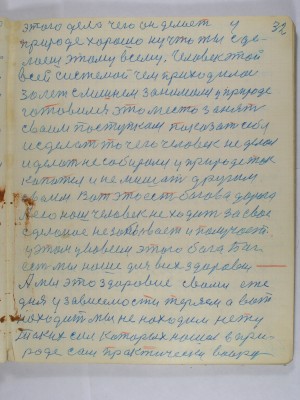 32
этого дела чего он делает у
природе хорошо ну что ты сде-
лаеш этому всему. Человек этой
всей системой чем приходилось
за лет с лишнем занимаим у природе
готовился это место занять
своим поступкам показать себя
и сделать то чего человек не делал
и делать не собирался у природе так
копатся и не мешать другому
своем Вот это есть богова дорога
А его наш человек не ходит за свое
сделаное не запевает и получает
у этом условием этого бога Бог
есть мы наше для всих здоровя
А мы это здоровие своим еже
дня у зависемости теряем а вот
находит мы не находим нету
таких сил которых нашол в при-
роде сам практически вокруг